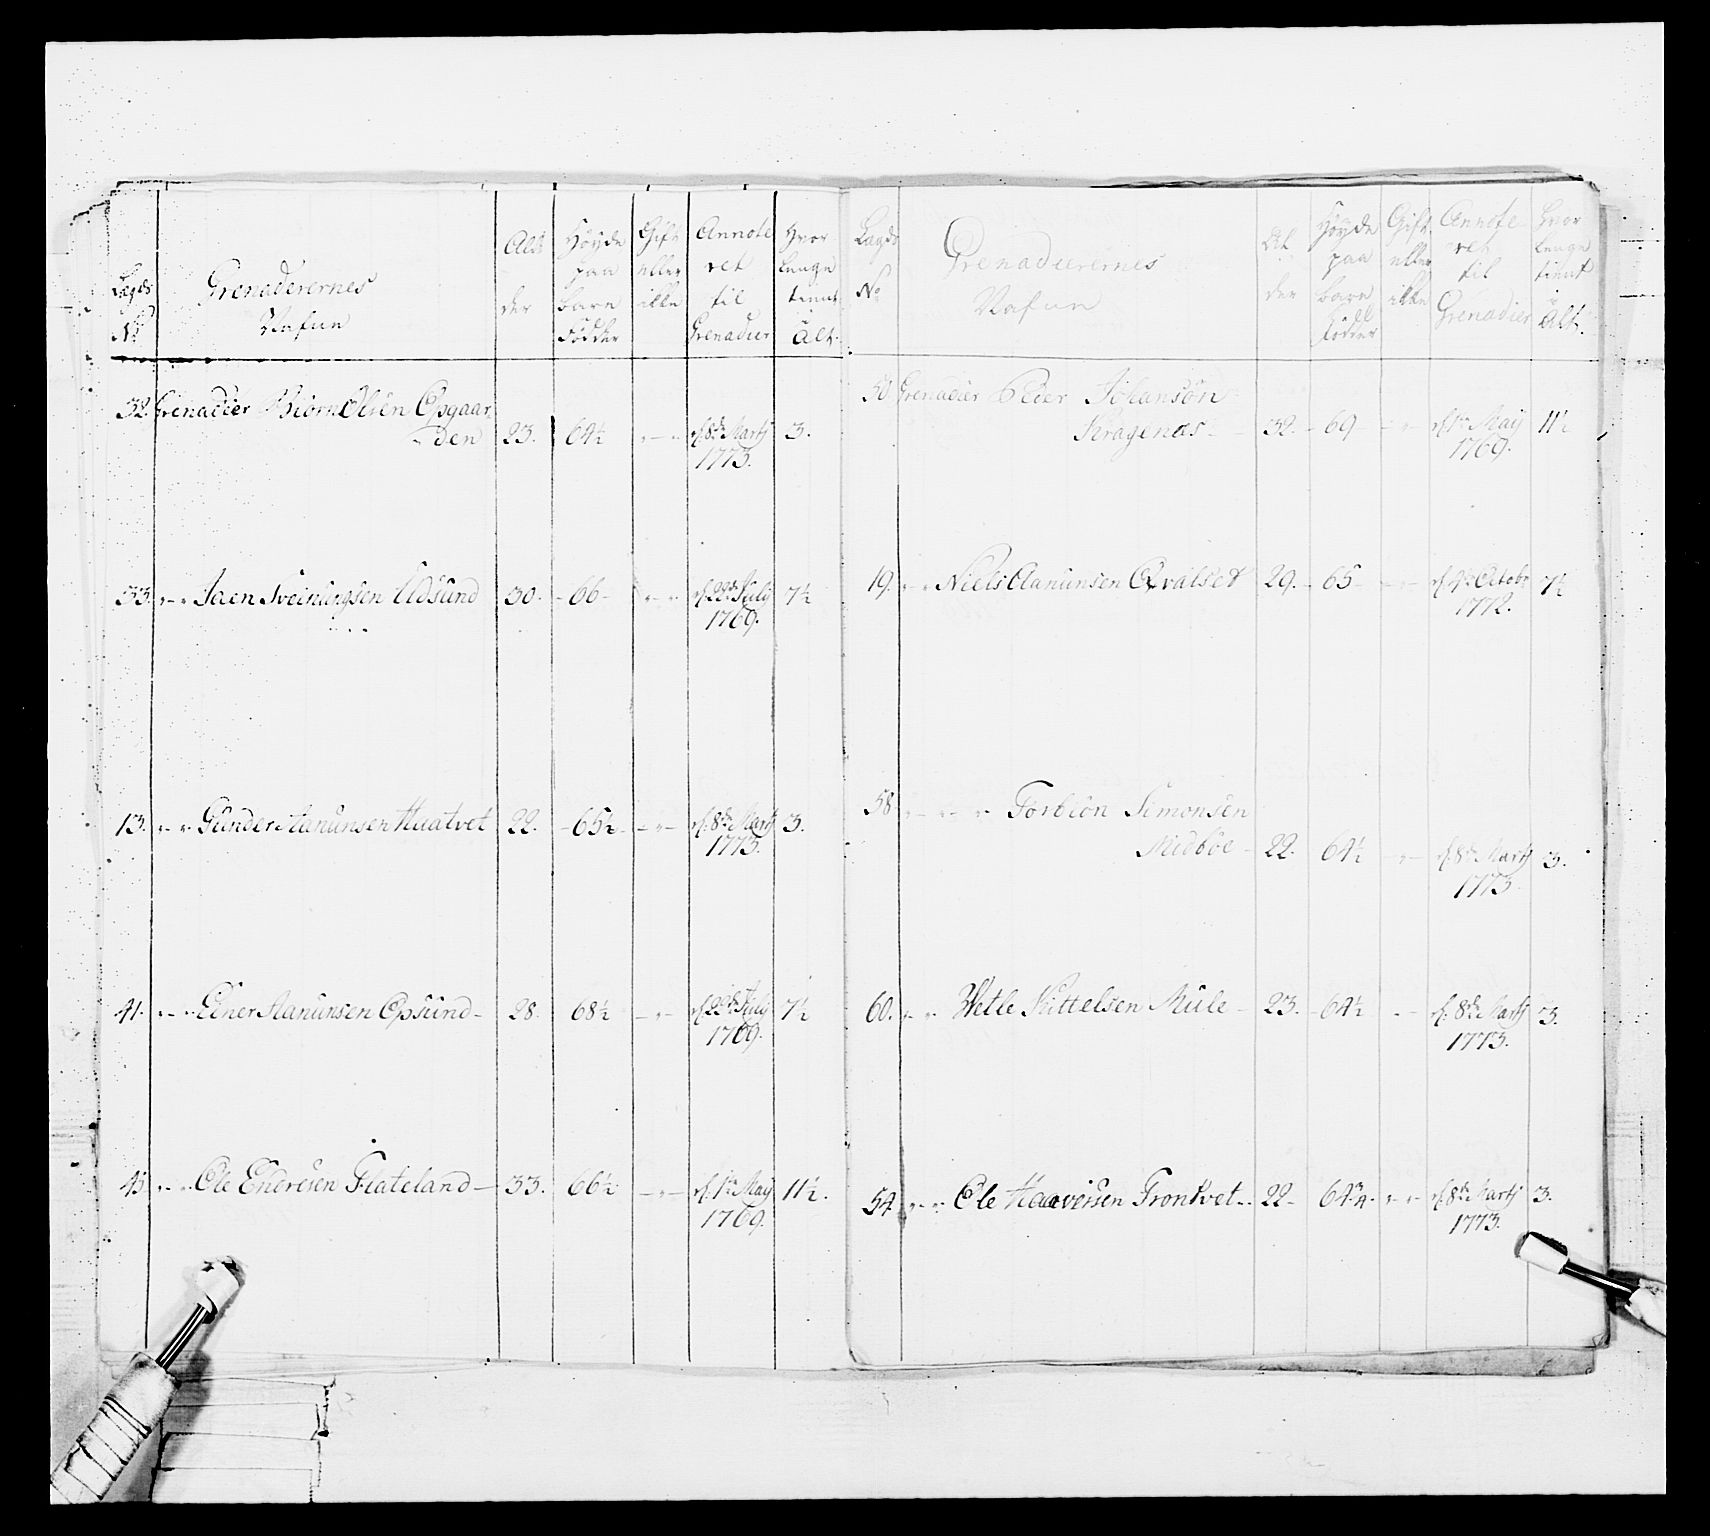 Lægds
No
Grenaderernes
Nafne
Alder
Høyde paa bare Fødder
Gift eller ikke
Annoteret til Grenadier
Hvor lenge tient i Alt.
32. Grenadier Biørn Olsen Opgaar
den 23. 64½ 8de Martj 3.
1773.
33. Jaen Sveinungsen Udsund 30. 66 22de July 7½
1769.
13. Gunder Aanunsen Huatvet 22. 65½ 8de Martj 3.
1773.
41. Einer Aanunsen Opsund 28. 68½ 22de July 7½
1769.
43 Ole Endresen Fiateland 33. 66½ 1te May 11½.
1769.
Lægds
No
Grenadierernes
Nafne
Alder
Høyde paa bare fødder
Gift eller ikke
Annoteret til Grenadier
Hvor lenge tient i Alt.
50 Grenadier Peder Johansøn
Kragenæs 32. 69 1te May 11½
1769.
19. Niels Aanunsen Qvalset 29. 65 4de Octobr 7½
1772.
58 Torbiøn Simonsen
Midbøe 22. 64½ 8de Martj 3.
1773
60. Vetle Kittelsen Mule 23. 64½ 8de Martj 3.
1773.
54 Ole Haaversen Frontvet 22 64¾. 8de Martj 3.
1773.